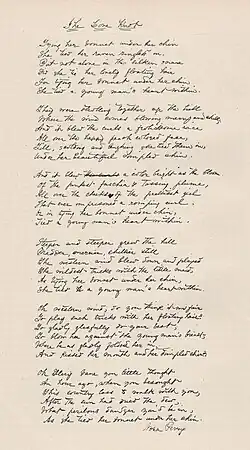 The Love Knot
Tying her bonnet under her chin
She tied her raven ringlets in.
But not alone in the silken snare
Did she tie her lovely floating hair
For tying her bonnet under her chin,
She tied a young man's heart within.
They were strolling together up the hill
Where the wind comes blowing merry and chill;
And it blew the curls a frolicsome race
All over the happy peach colored face,
Till, scolding and laughing she tied them in
Under her beautiful dimpled chin.
And it blew a color bright as the bloom
Of the pinkest fuchsia's tossing plume,
All over the cheeks of the prettiest girl
That ever imprisoned a romping curl,
Or in tying her bonnet under her chin,
Tied a young man's heart within.
Steeper and steeper grew the hill
Madder, merrier, chillier still
The western wind blew down, and played
The wildest tricks with the little maid,
As tying her bonnet under her chin,
She tied a young man's heart within.
Oh western wind, do you think it was fair
To play such tricks with her floating hair?
To gladly, gleefully do your best,
To blow her against the young man's breast,
Where he as gladly folded her in,
And kissed her mouth and her dimpled chin?
Oh Ellery Vane, you little thought
An hour ago, when you besought
This country lass to walk with you,
After the sun had dried the dew,
What perilous danger you'd be in,
As she tied her bonnet under her chin.
Nora Perry